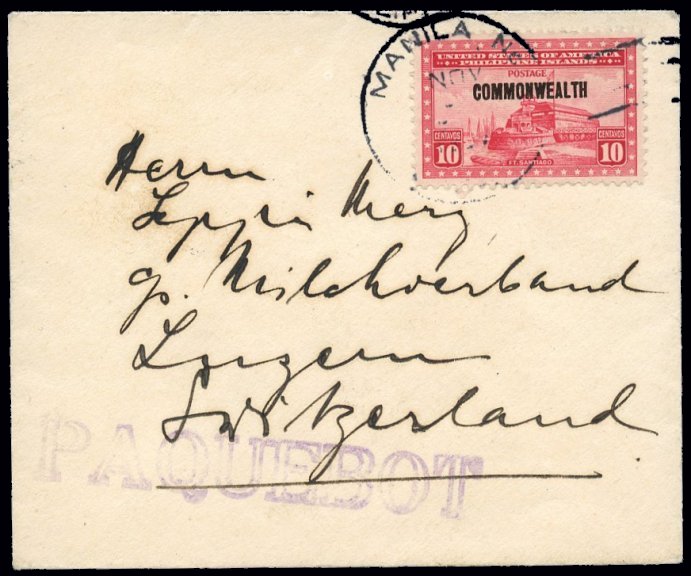 MANILA
NOV
UNITED STATES OF AMERICA
PHILIPPINE ISLANDS
POSTAGE
COMMONWEALTH
CENTAVOS CENTAVOS
10 10
FT. SANTIAGO
Herrn
Merz
Milchverband
Luzern
Switzerland
PAQUEBOT